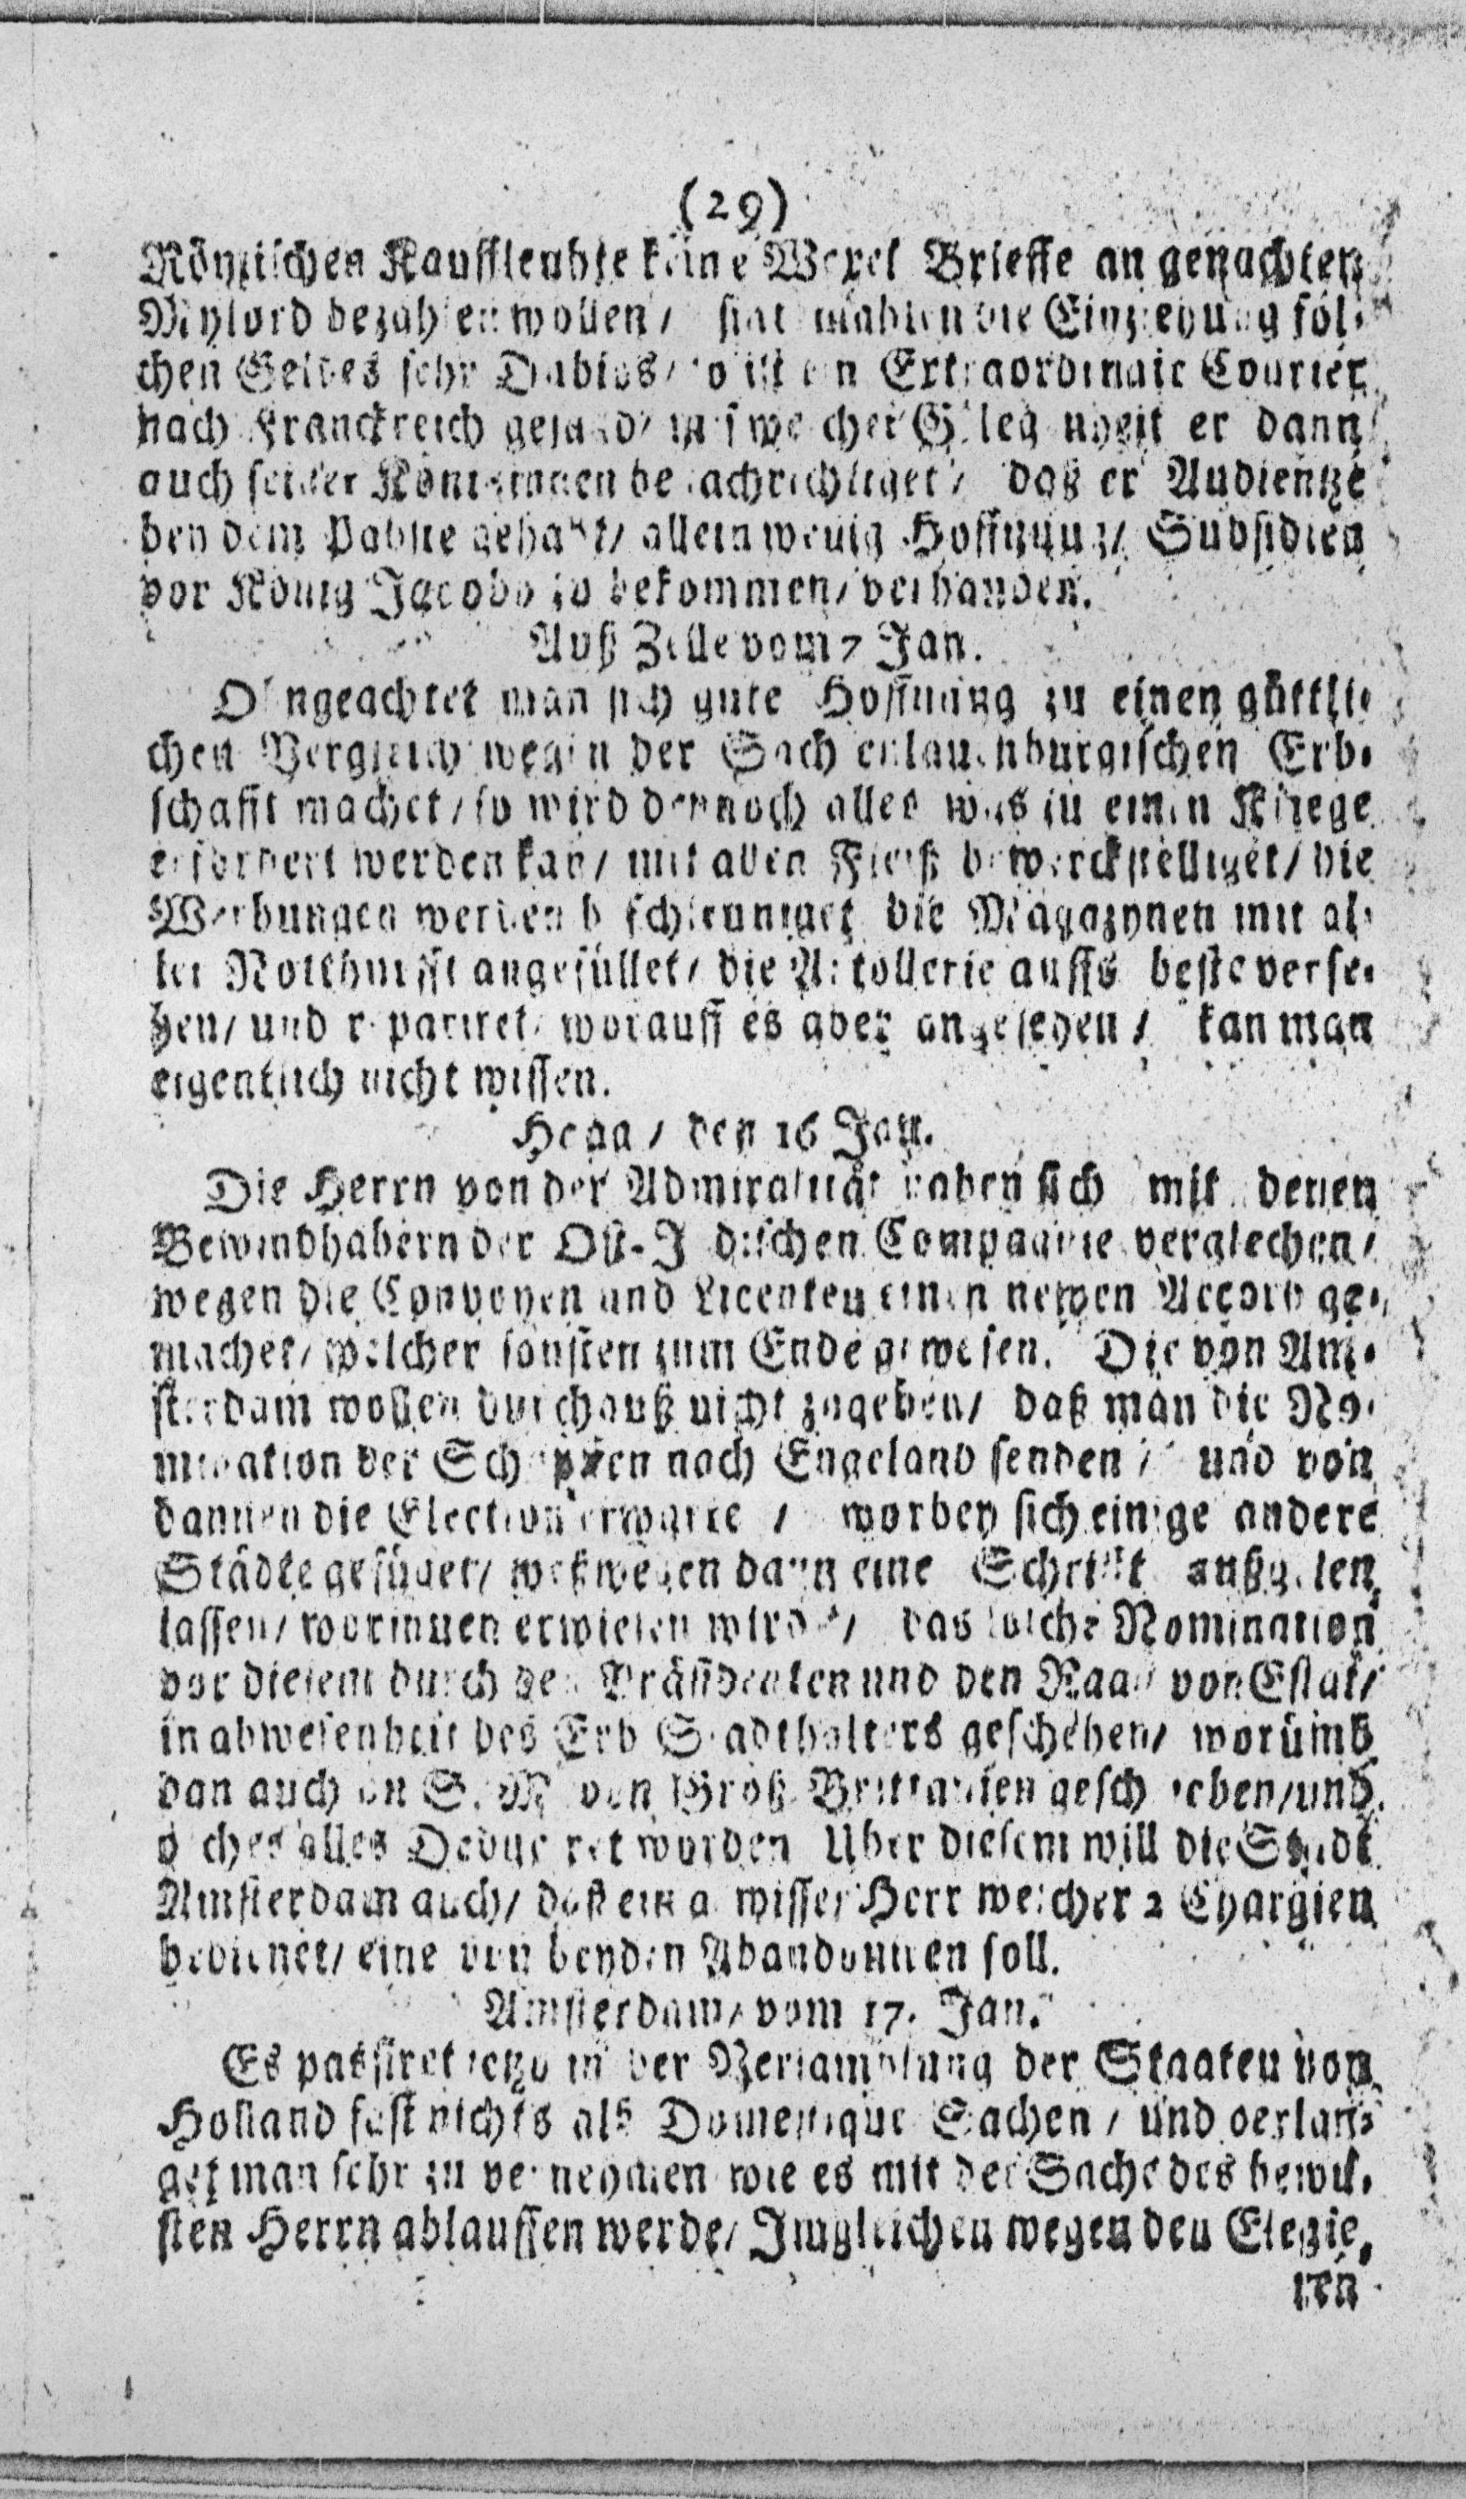 (29)
Römischen Kauffleuhte keine Wexel Brieffe an gedachten
Mylord bezahlen wollen / sint mahlen die Einziehung sol-
chen Geldes sehr Dubios / so ist ein Extraordinair Courier
nach Franckreich gesand / mit welcher Gelegenheit er dann
auch seiner Königinnen benachrichtiget / daß er Audientze
bey dem Pabste gehabt / allein wenig Hoffnung / Subsidien
vor König Jacobo zu bekommen / verhanden.
Auß Zelle vom 7 Jan.
Ohngeachtet man sich gute Hoffnung zu einen güttli-
chen Vergleich wegen der Sachsenlauenburgischen Erb-
schafft machet / so wird dennoch alles was zu einen Kriege
erfordert werden kan / mit allen Fleiß bewerckstelliget / die
Werbungen werden beschleuniget die Magazynen mit al-
ler Notthurfft angefüllet / die Artollerie auffs beste verse-
hen / und repariret / worauff es aber angesehen / kan man
eigentlich nicht wissen.
Haag / den 16 Jan.
Die Herrn von der Admiralität haben sich mit denen
Bewindhabern der Ost-Indischen Compagnie verglechen /
wegen die Convoyen und Licenten einen newen Accord ge-
machet / welcher sonsten zum Ende gewesen. Die von Am-
sterdam wollen durchauß nicht zugeben / daß man die No-
mination der Scheppen nach Engeland senden / und von
dannen die Election erwarte / worbey sich einige andere
Städte gefüget / weßwegen dann eine Schrifft außgehen
lassen / worinnen erwiesen wird / das solche Nomination
vor diesem durch den Präsidenten und den Raad von Estat /
in abwesenheit des Erb Stadthalters geschehen / worümb
dan auch an S. M. von Groß Brittanien geschrieben / und
solches alles Deduciret worden Uber diesem will die Stadt
Amsterdam auch / daß ein gewisser Herr welcher 2 Chargien
bedienet / eine von beyden Abandonnen soll.
Amsterdam / vom 17. Jan.
Es passiret jetzo in der Versamblung der Staaten von
Holland fast nichts alß Domestique Sachen / und verlan-
get man sehr zu vernehmen wie es mit der Sache des bewu-
sten Herrn ablauffen werde / Imgleichen wegen den Elegie-
ren